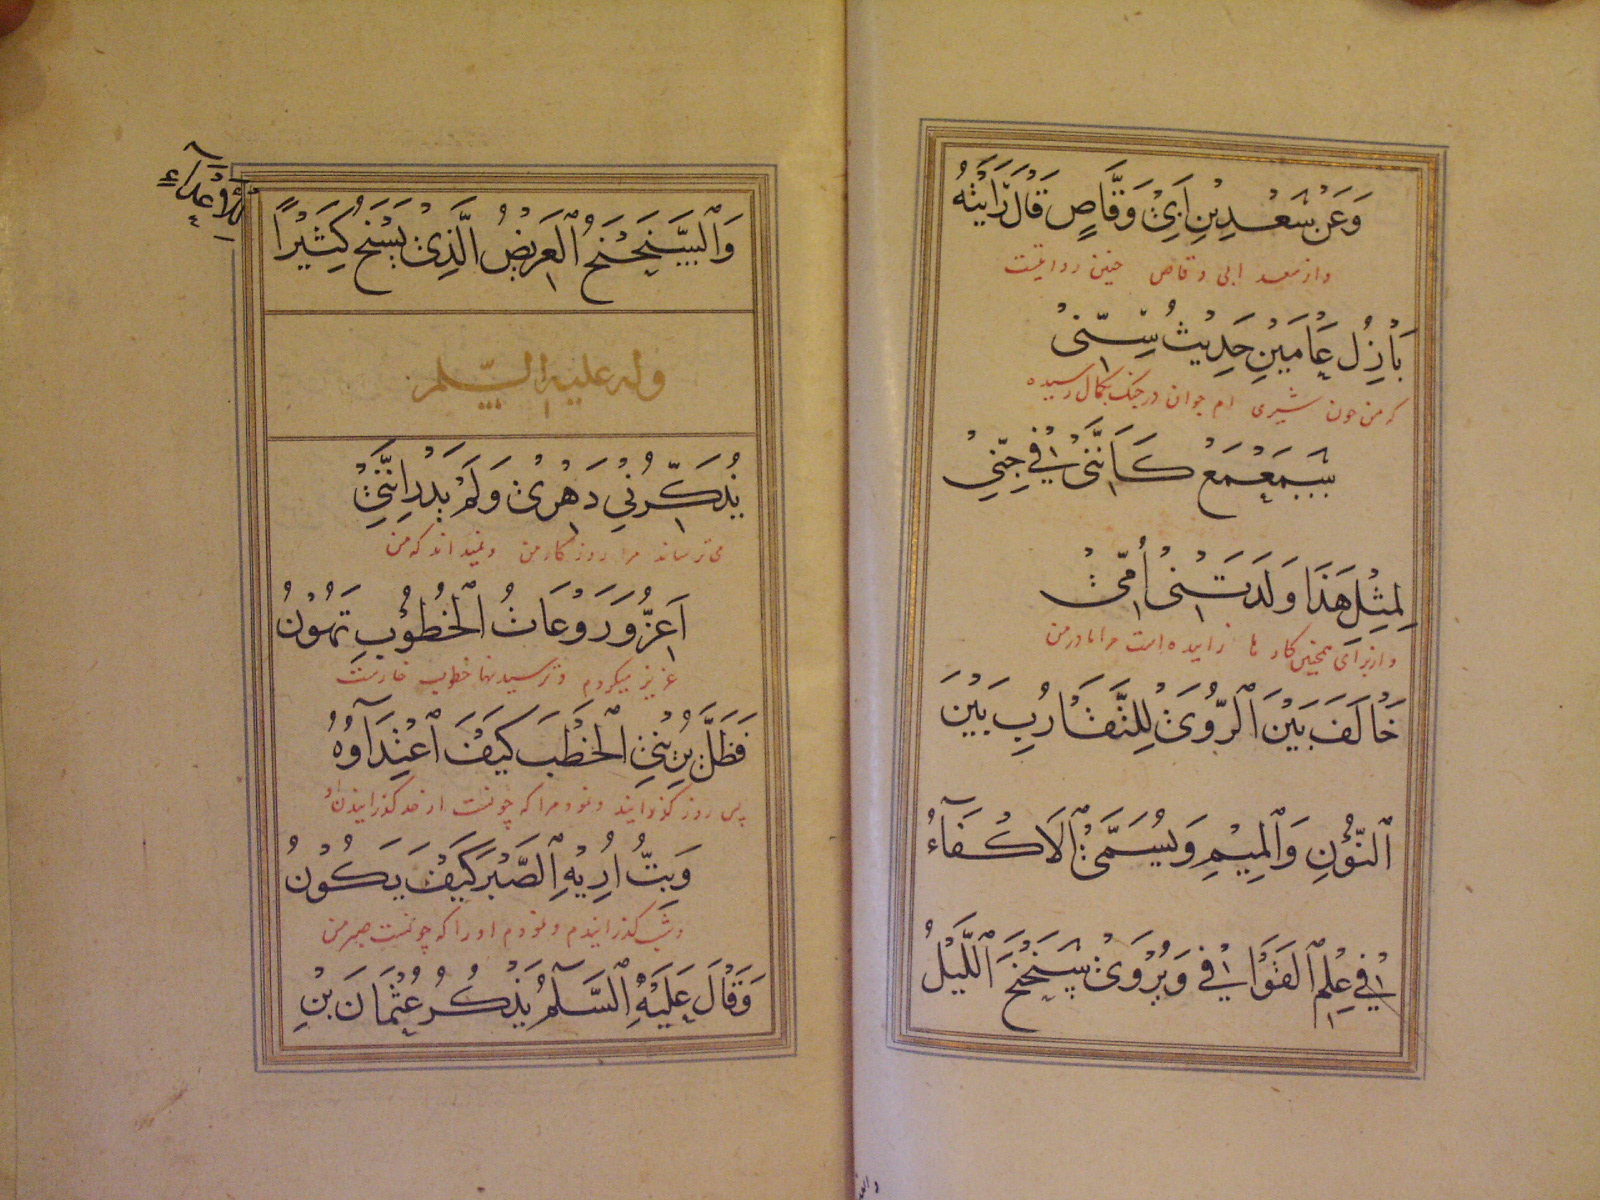 وَعَنْ سَعْدِ بْنِ أَبِيْ وَقَّاصٍ قَالَ رَأَيْتُهُ
واز سعد ابی وقاص چنین روایتست
بَازِلُ عَامَيْنِ حَدِيْثُ سِنِّيْ
که من چون شیری ام جوان در جنک بکمال رسیده
سَمَعْمَعُ كَأَنَّنِيْ فِيْ جِنِّيْ
لِمِثْلِ هَذَا وَلَدَتْنِيْ أُمِّيْ
واز برای همچنین کار ها زاییده است مرا مادر من
خَالَفَ بَيْنَ الرَّوِيِّ لِلتَّقَارُبِ بَيْنَ
النُّوْنِ وَالْمِيْمِ وَيُسَمَّىْ الْاَكْفَآءُ
فِيْ عِلْمِ الْقَوَافِيْ وَيُرْوَىْ سَنَحْنَحُ اللَّيْلِ
وَالسَّنَحْنَحُ الْعَرِيْضُ الَّذِيْ يَسْنَحُ كَثِيْرًا
لِلْأَعْدَآءِ
وله عليه السّلم
يُذَكِّرُنِيْ دَهْرِيْ وَلَمْ يَدْرِ اَنَّنِيْ
می ترساند مرا روزکار من و نمیداند که من
اَعِزُّ وَرَوْعَاتُ الْخُطُوْبِ تَهُوْنُ
عزیز میکردم و ترسیدنها خطوب خارست
فَظَلَّ يُرِيْنِيْ الْخَطْبَ كَيْفَ اعْتِدَآؤُهُ
پس روز کذرانید و نمود مرا که چونست از حد کذرانیدن او
وَبِتُّ اُرِيْهِ الصَّبْرَ كَيْفَ يَكُوْنُ
وشب کذرانیدم و نمودم اورا که چونست صبر من
وَقَالَ عَلَيْهِ السَّلَمُ يَذْكُرُ عُثْمَانَ بْنَ